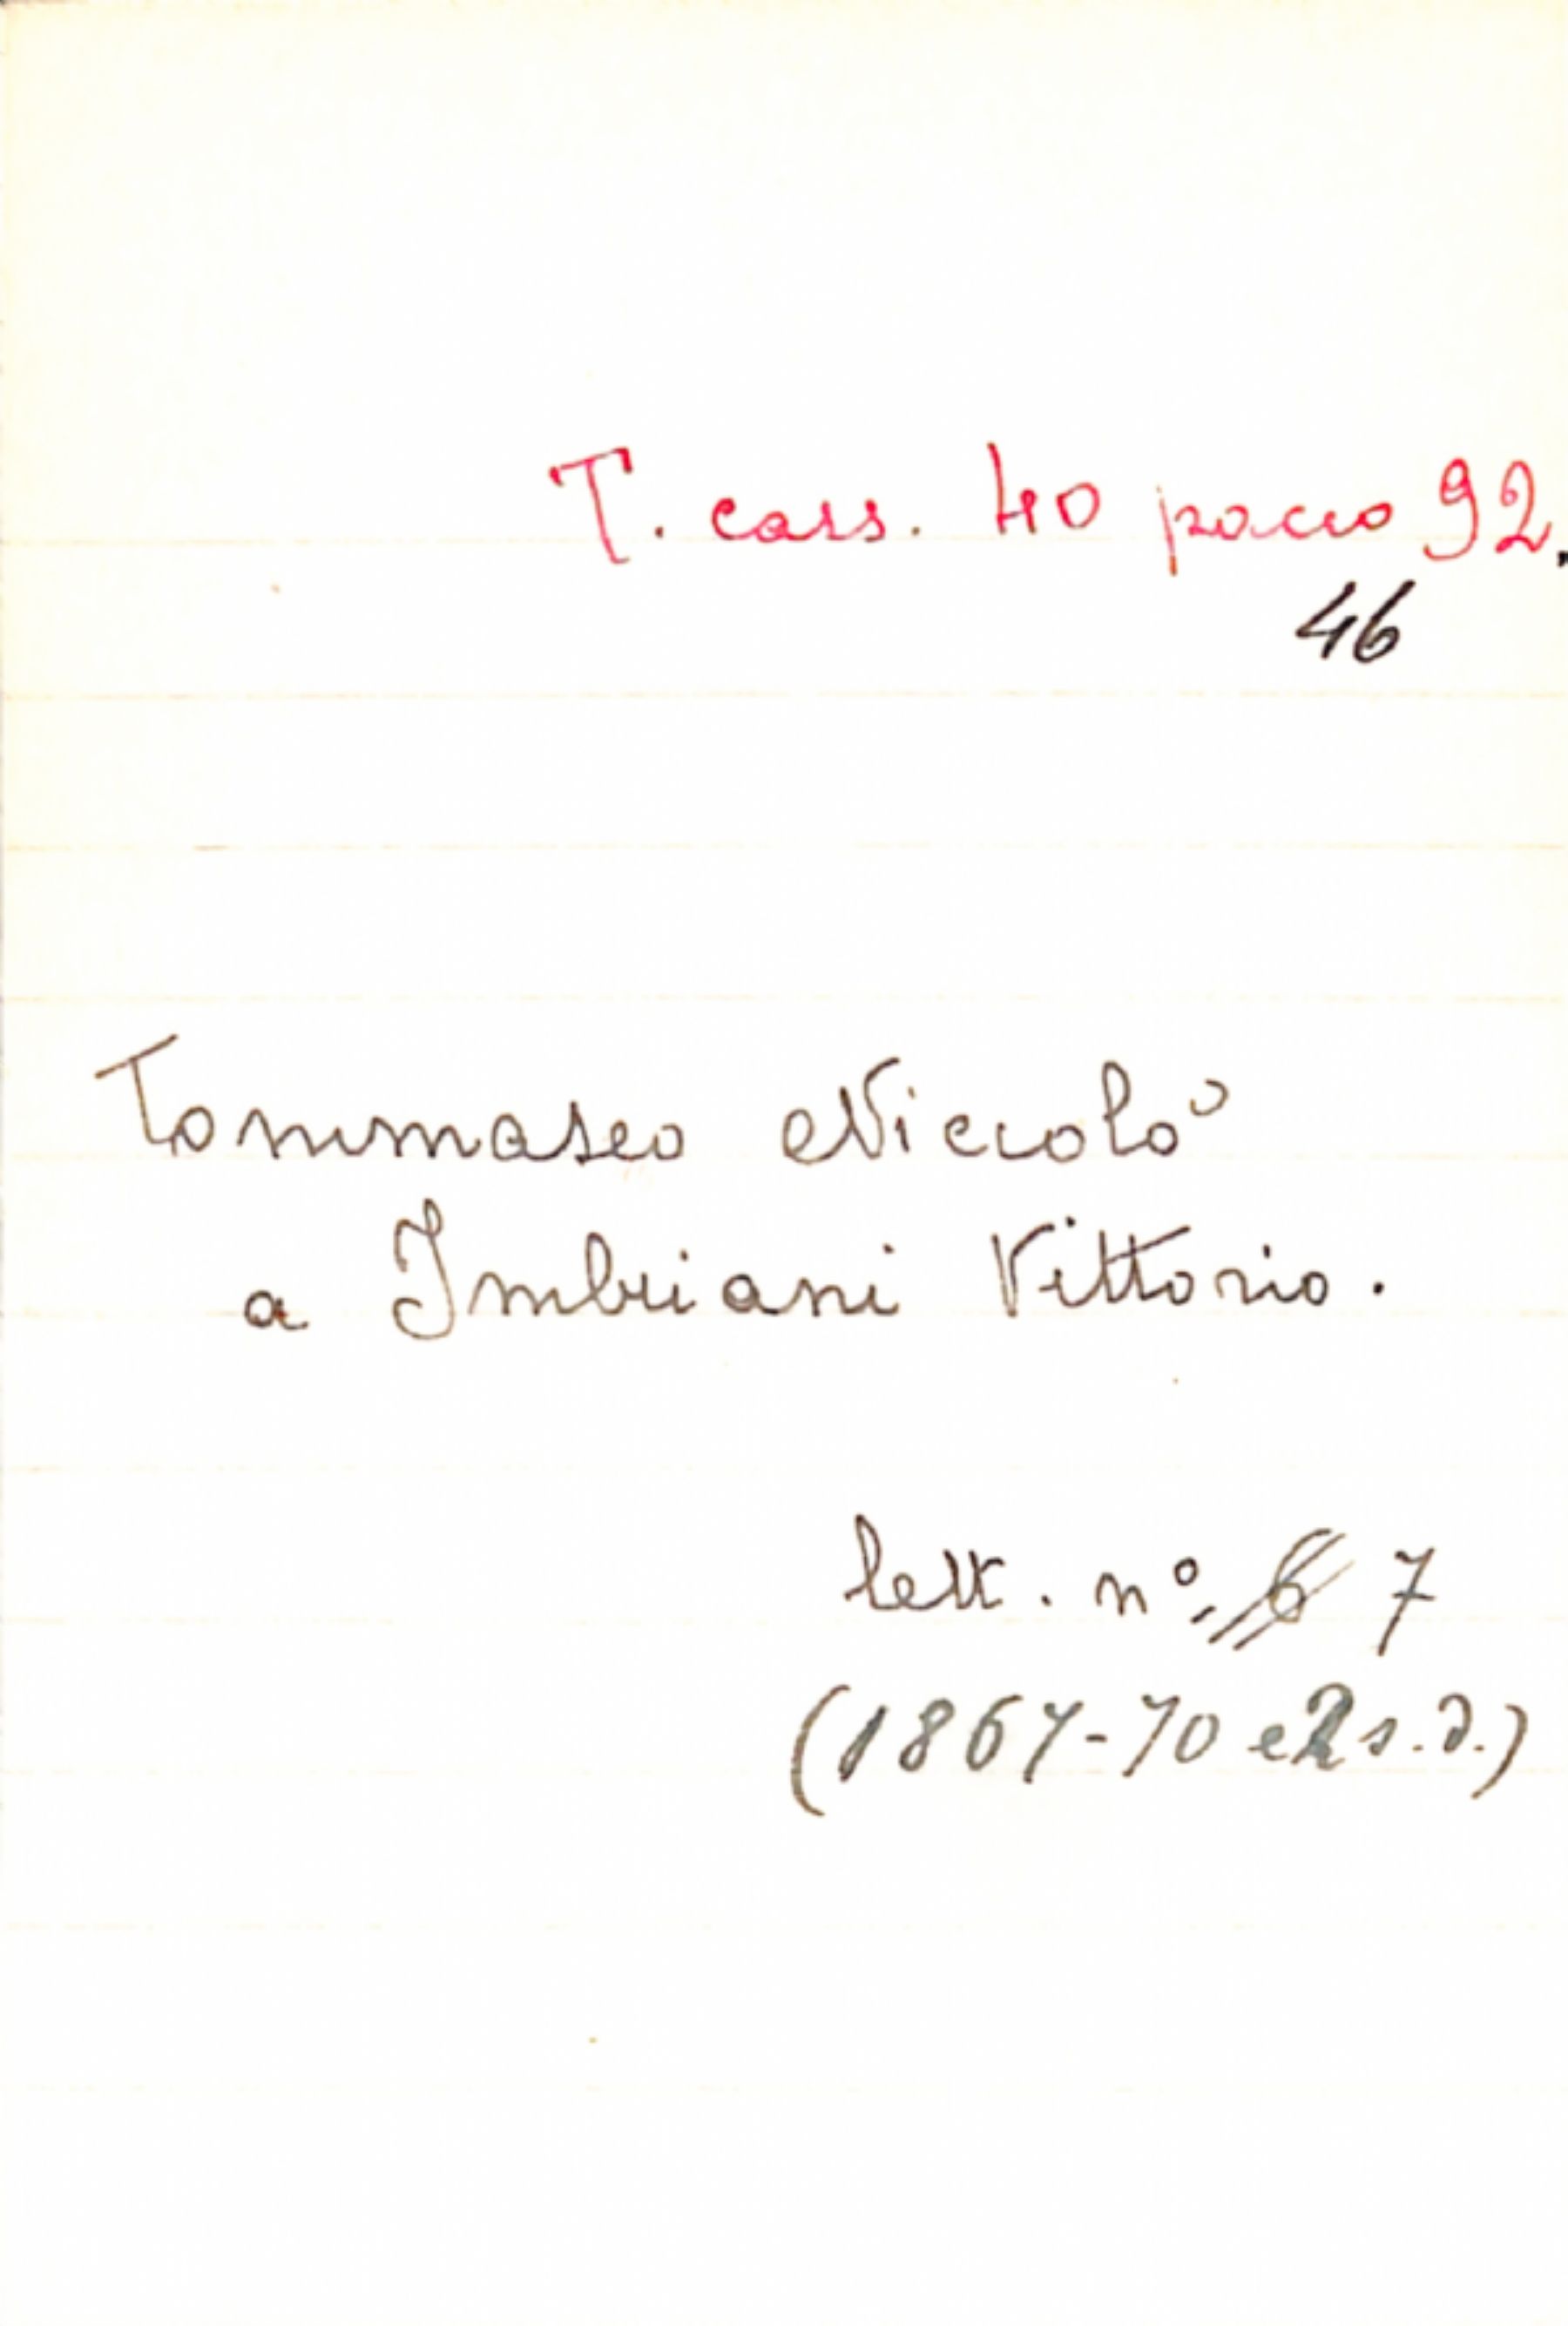 T. cass. 40 pacco 92.
46
Tommaseo Niccolò
a Imbriani Vittorio.
lett. n°. 6 7
(1867-70 e 2 s.d.)